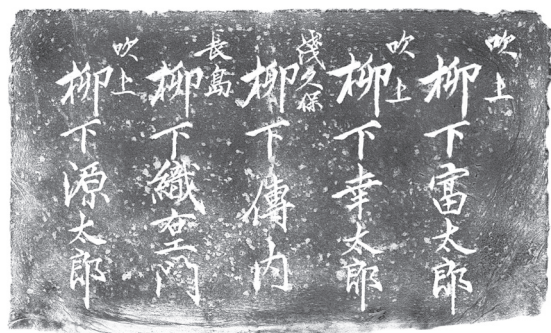 吹上
柳下富太郎
吹上
柳下幸太郎
茂久保
柳下傳内
長島
柳下織右エ門
吹上
柳下源太郎